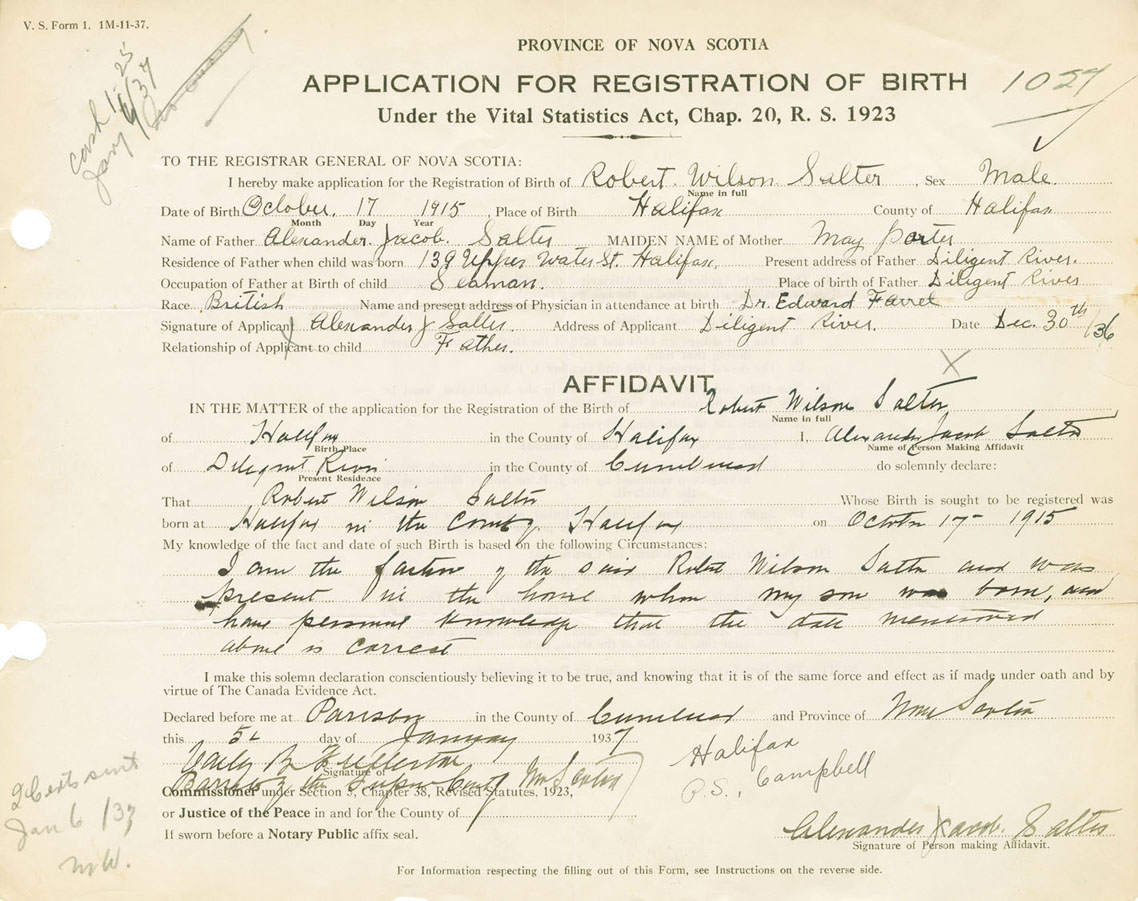 V. S. Form 1. 1M-11-37.
cash 1.25
Jany 6/37
PROVINCE OF NOVA SCOTIA
APPLICATION FOR REGISTRATION OF BIRTH
1027
Under the Vital Statistics Act, Chap. 20, R. S. 1923
TO THE REGISTRAR GENERAL OF NOVA SCOTIA:
I hereby make application for the Registration of Birth of Robert Wilson Salter, Sex Male.
Name in full
Date of Birth October 17 1915, Place of Birth Halifax County of Halifax
Month Day Year
Name of Father Alexander Jacob Salter MAIDEN NAME of Mother May Porter
Residence of Father when child was born 139 Upper Water St. Halifax, Present address of Father Diligent River.
Occupation of Father at Birth of child Seaman. Place of birth of Father Diligent River
Race British Name and present address of Physician in attendance at birth Dr. Edward Farrel
Signature of Applicant Alexander J Salter. Address of Applicant Diligent River. Date Dec. 30th /36
Relationship of Applicant to child Father.
X
AFFIDAVIT
IN THE MATTER of the application for the Registration of the Birth of Robert Wilson Salter
Name in full
of Halifax in the County of Halifax I, Alexander Jacob Salter
Birth Place Name of Person Making Affidavit
of Diligent River in the County of Cumberland do solemnly declare:
Present Residence
That Robert Wilson Salter Whose Birth is sought to be registered was
born at Halifax in the County Halifax on October 17- 1915
My knowledge of the fact and date of such Birth is based on the following Circumstances:
I am the father of the said Robert Wilson Salter and was
present in the house when my son was born, and
have personal knowledge that the date mentioned
above is correct
I make this solemn declaration conscientiously believing it to be true, and knowing that it is of the same force and effect as if made under oath and by
virtue of The Canada Evidence Act.
Declared before me at Parrsboro in the County of Cumberland and Province of Nova Scotia
this 5th day of January 1937
B. Fullerton
Signature of
Barrister of the Supreme Court Nova Scotia
Commissioner under Section 3, Chapter 38, Revised Statutes, 1923,
or Justice of the Peace in and for the County of
If sworn before a Notary Public affix seal.
Halifax
P.S., Campbell
2 Certs sent
Jan 6/37
M.W.
Alexander Jacob Salter
Signature of Person making Affidavit.
For Information respecting the filling out of this Form, see Instructions on the reverse side.